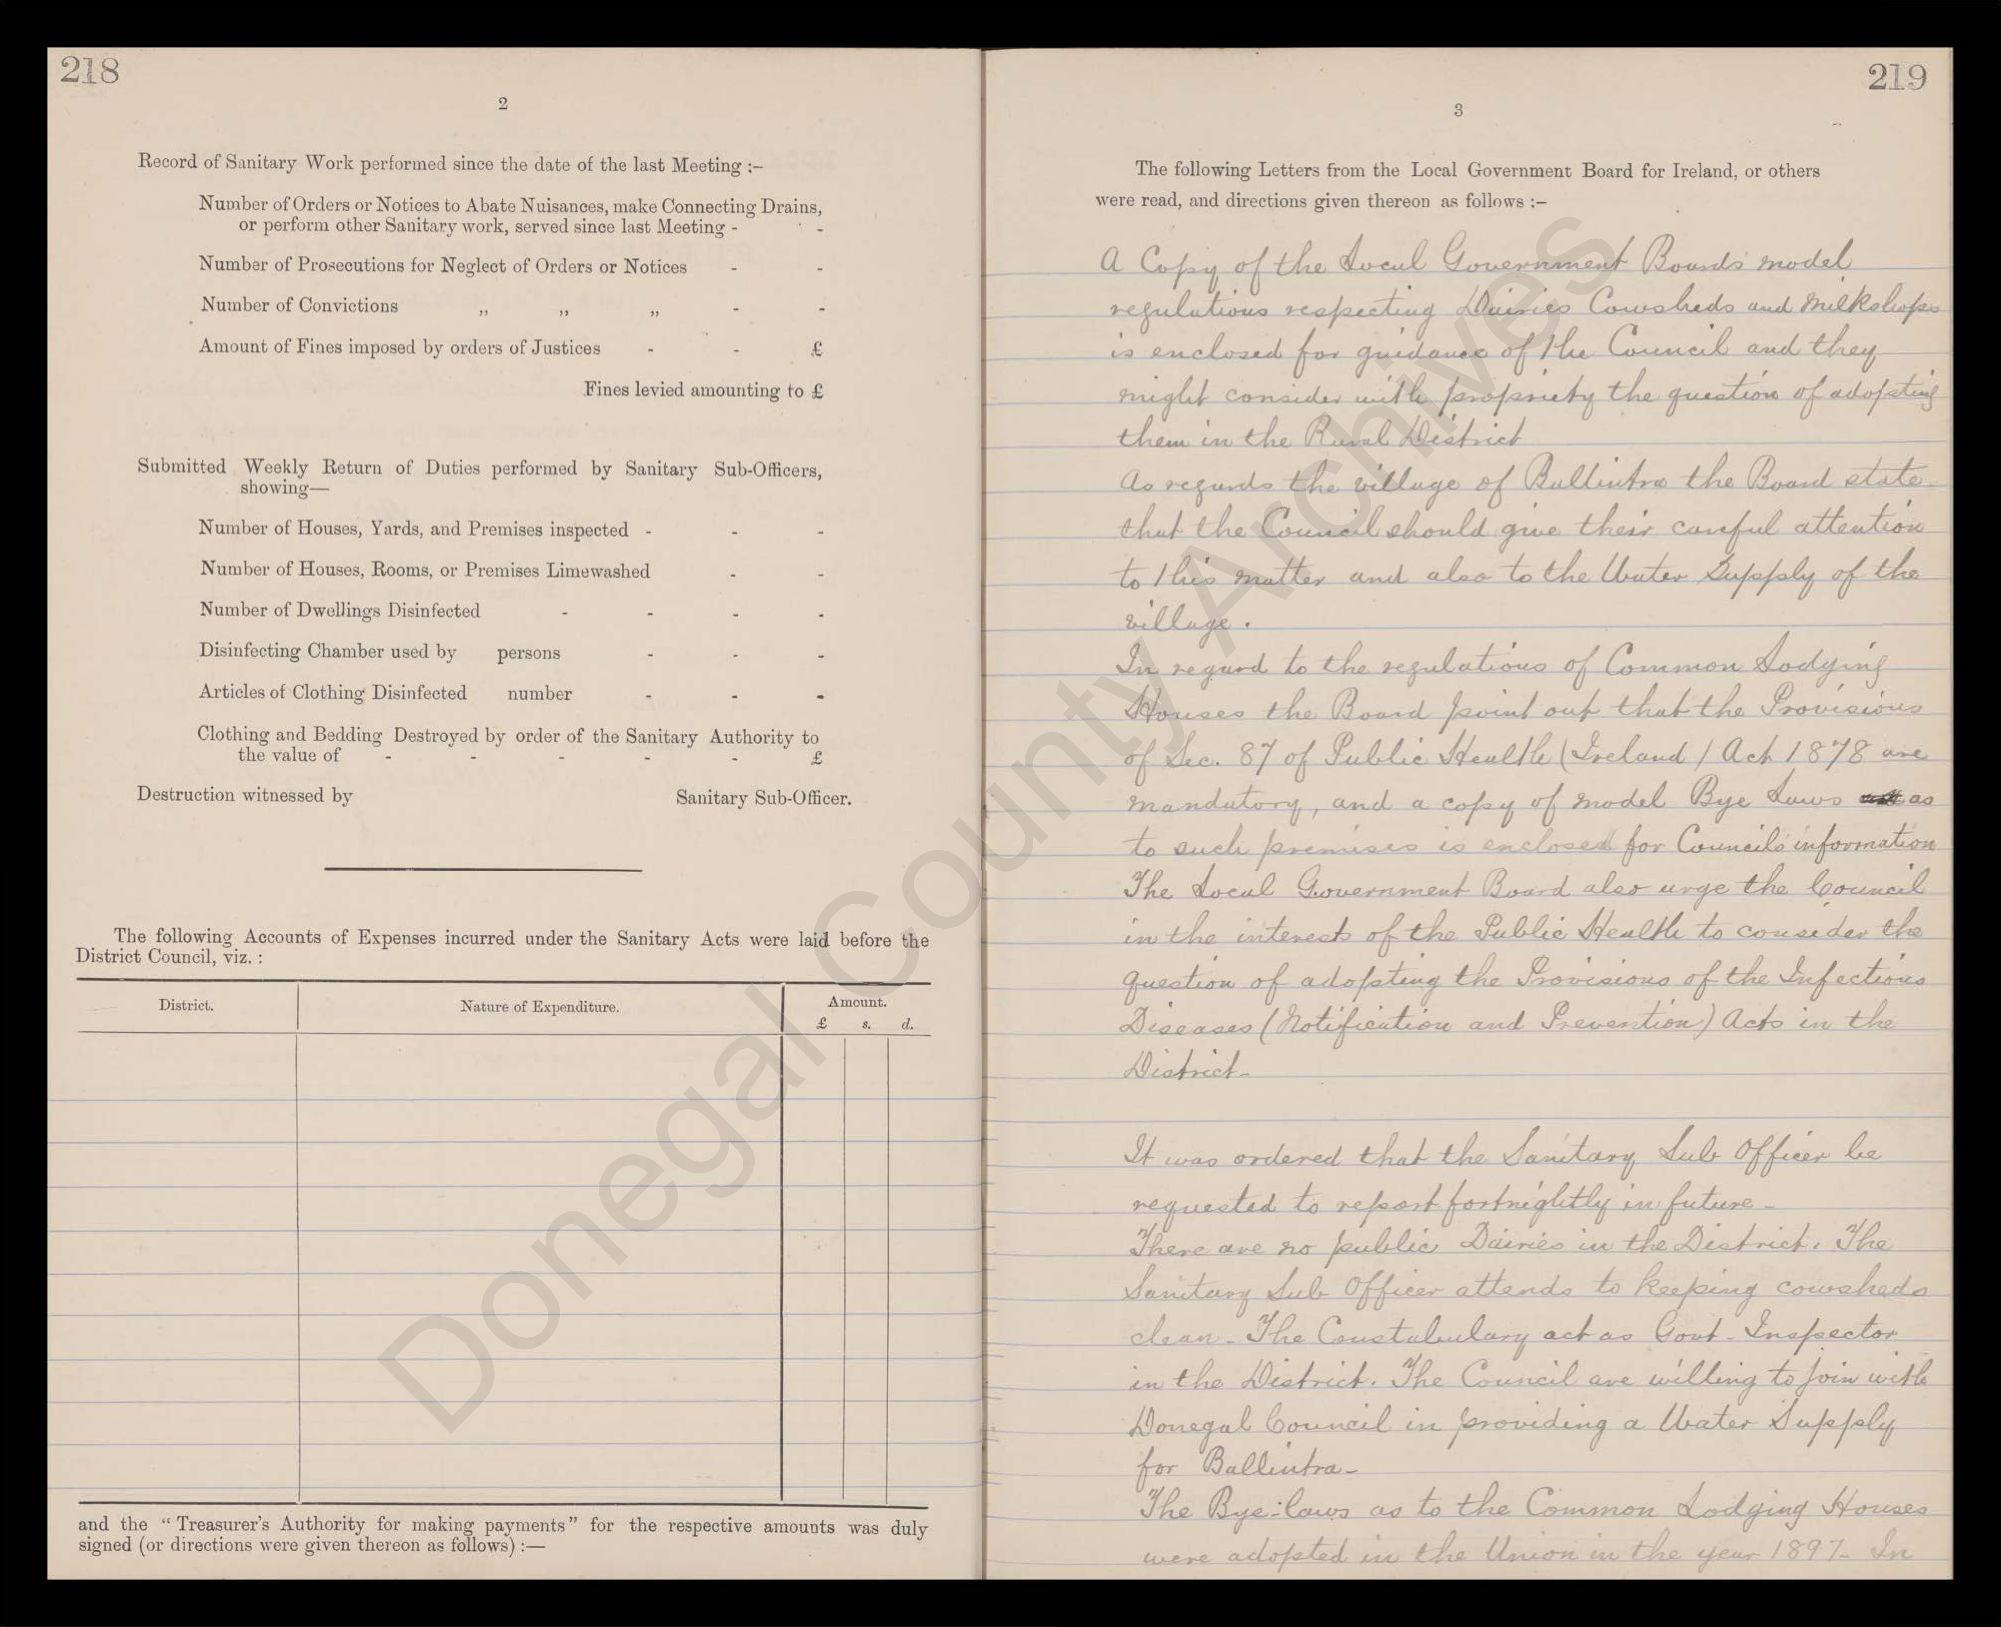 218
2
Record of Sanitary Work performed since the date of the last Meeting :-
Number of Orders or Notices to Abate Nuisances, make Connecting Drains,
or perform other Sanitary work, served since last Meeting - -
Number of Prosecutions for Neglect of Orders or Notices - -
Number of Convictions „ „ „ - -
Amount of Fines imposed by orders of Justices - - £
Fines levied amounting to £
Submitted Weekly Return of Duties performed by Sanitary Sub-Officers,
showing—
Number of Houses, Yards, and Premises inspected - - -
Number of Houses, Rooms, or Premises Limewashed - -
Number of Dwellings Disinfected - - - -
Disinfecting Chamber used by persons - - -
Articles of Clothing Disinfected number - - -
Clothing and Bedding Destroyed by order of the Sanitary Authority to
the value of - - - - - £
Destruction witnessed by Sanitary Sub-Officer.
The following Accounts of Expenses incurred under the Sanitary Acts were laid before the
District Council, viz. :
District. Nature of Expenditure. Amount.
£ s. d.
and the “Treasurer's Authority for making payments” for the respective amounts was duly
signed (or directions were given thereon as follows) :—
219
3
The following Letters from the Local Government Board for Ireland, or others
were read, and directions given thereon as follows :-
A Copy of the Local Government Boards model
regulations respecting Dairies Cowsheds and Milkshops
is enclosed for guidance of the Council and they
might consider with propriety the question of adopting
them in the Rural District
As regards the village of Ballintra the Board state
that the Council should give their careful attention
to this matter and also to the Water Supply of the
village.
In regard to the regulations of Common Lodging
Houses the Board point out that the Provisions
of Sec. 87 of Public Health (Ireland) Act 1878 are
mandatory, and a copy of model Bye Laws as
to such premises is enclosed for Councils information
The Local Government Board also urge the Council
in the interests of the Public Health to consider the
question of adopting the Provisions of the Infectious
Diseases (Notification and Prevention) Acts in the
District-
It was ordered that the Sanitary Sub Officer be
requested to report fortnightly in future-
There are no public Dairies in the District. The
Sanitary Sub Officer attends to keeping cowsheds
clean- The Constabulary act as Govt- Inspector
in the District. The Council are willing to join with
Donegal Council in providing a Water Supply
for Ballintra-
The Bye-laws as to the Common Lodging Houses
were adopted in the Union in the year 1897- In
Donegal County Archives